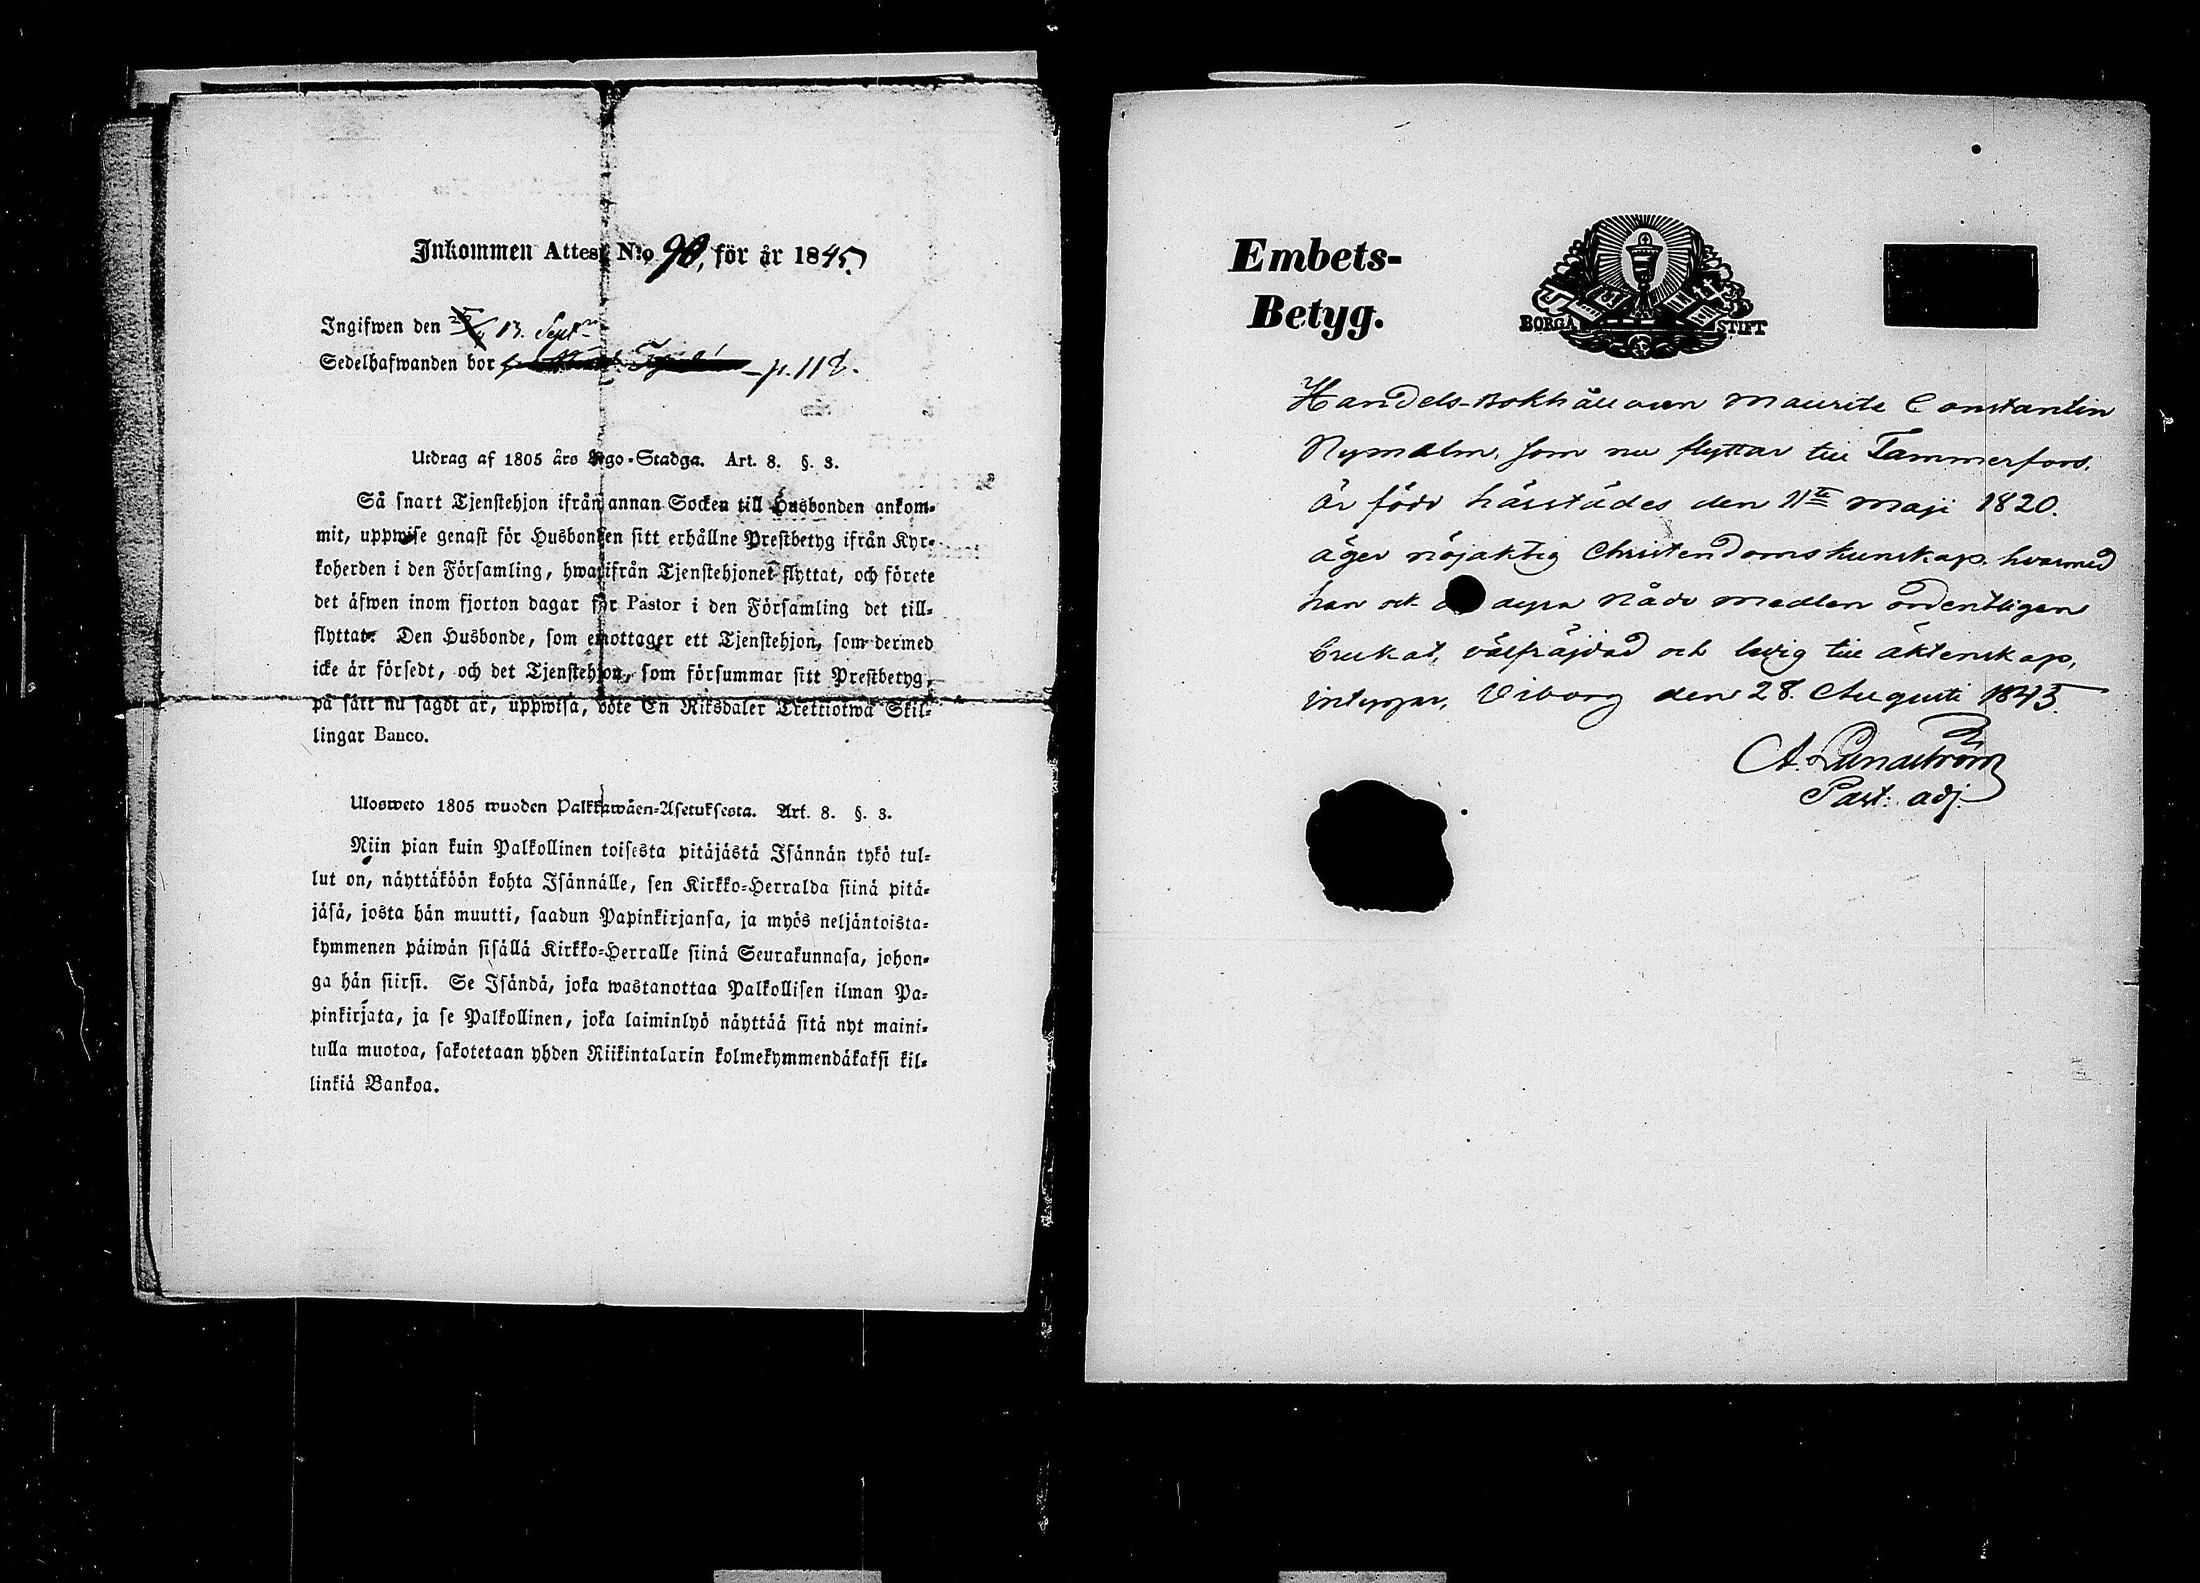 Inkommen Attest N:o 90, för år 1845.
Ingifwen den 13. Sept.
Sedelhafwanden bor p. 118.
Utdrag af 1805 års Lego-Stadga. Art. 8. §. 3.
Så snart Tjenstehjon ifrån annan Socken till Husbonden ankom-
mit, uppwise genast för Husbonden sitt erhållne Prestbetyg ifrån Kyr-
koherden i den Församling, hwarifrån Tjenstehjonet flyttat, och förete
det äfwen inom fjorton dagar för Pastor i den Församling det till-
flyttat. Den Husbonde, som emottager ett Tjenstehjon, som dermed
icke är försedt, och det Tjenstehjon, som försummar sitt Prestbetyg,
på sätt nu sagdt är, uppwisa, böte En Riksdaler Trettiotwå Skil-
lingar Banco.
Ulosweto 1805 wuoden Palkkawäen-Asetuksesta. Art. 8. §. 3.
Niin pian kuin Palkollinen toisesta pitäjästä Isännän tykö tul-
lut on, näyttäköön kohta Isännälle, sen Kirkko-Herralda siinä pitä-
jäsä, josta hän muutti, saadun Papinkirjansa, ja myös neljäntoista-
kymmenen päiwän sisällä Kirkko-Herralle siinä Seurakunnasa, johon-
ga hän siirsi. Se Isändä, joka wastanottaa Palkollisen ilman Pa-
pinkirjata, ja se Palkollinen, joka laiminlyö näyttää sitä nyt maini-
tulla muotoa, sakotetaan yhden Riikintalarin kolmekymmendäkaksi kil-
linkiä Bankoa.
Embets-
Betyg.
BORGÅ STIFT
Handels-Bokhållaren Maurits Constantin
Nymalm, som nu flyttar till Tammerfors,
är född härstädes den 11te Maji 1820.
äger nöjaktig Christendomskunskap, hvarmed
han ock dyra Nåde medlen ordentligen
brukat, välfräjdad och ledig till äktenskap,
intygar, Viborg den 28. Augusti 1845.
A. Lundström
Past: adj.